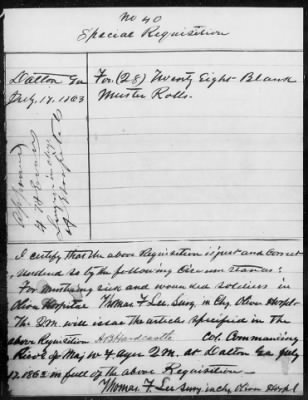 No 40
Special Requisition
Dalton Ga
July. 17. 1863
For (28) Twenty Eight Blank
Muster Rolls.
I certify that the above Requisition is just and correct
rendered so by the following Circumstances:
For Mustering sick and wounded soldiers in
Olive Hospital Thomas F. Lee Surg in Chg Olive Hospt.
The QM. will issue the articles specified in the
above Requisition A B Hardcastle Col. Commanding
Recd of Maj W Ayer Q.M. at Dalton Ga July
17. 1863 in full of the above Requisition
Thomas F. Lee Surg in Chg Olive Hospt